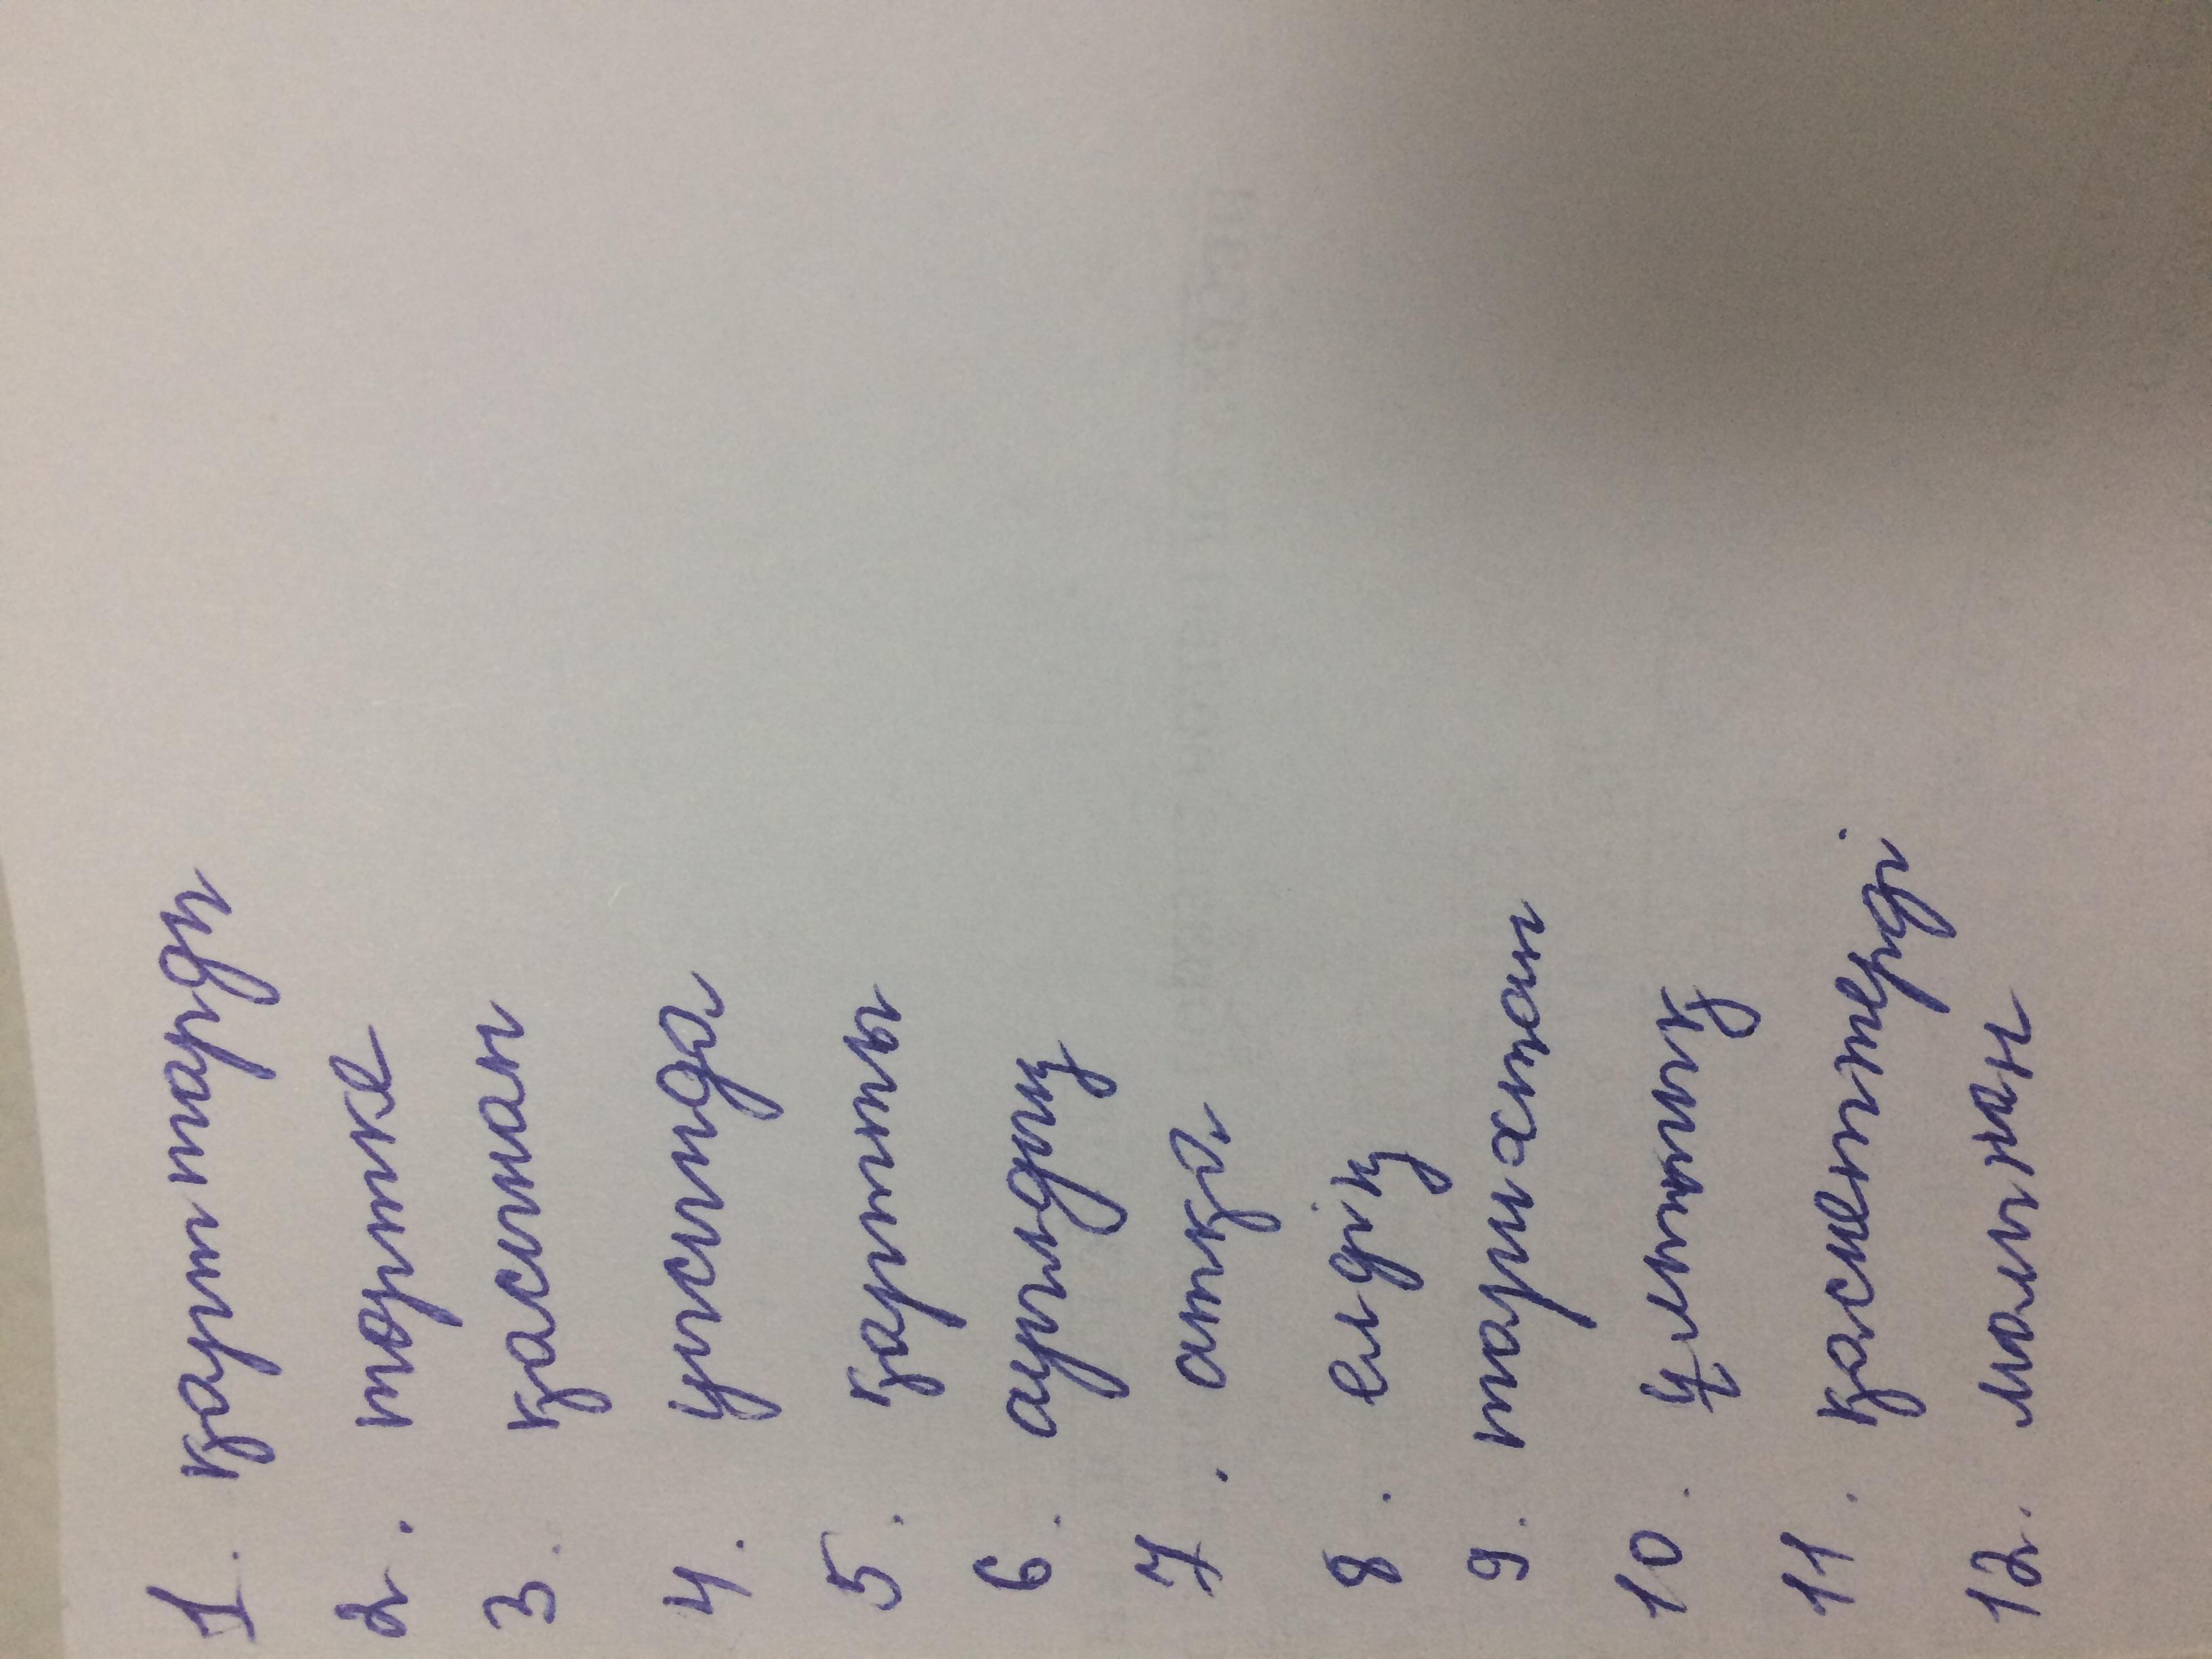 1. қарттарды
2. төртке
3. қасынан
4. ұсынуда
5. қартты
6. ауылдың
7. атқа
8. елдің
9. тарихтан
10. ұлттық
11. қасиеттерді
12. малынан